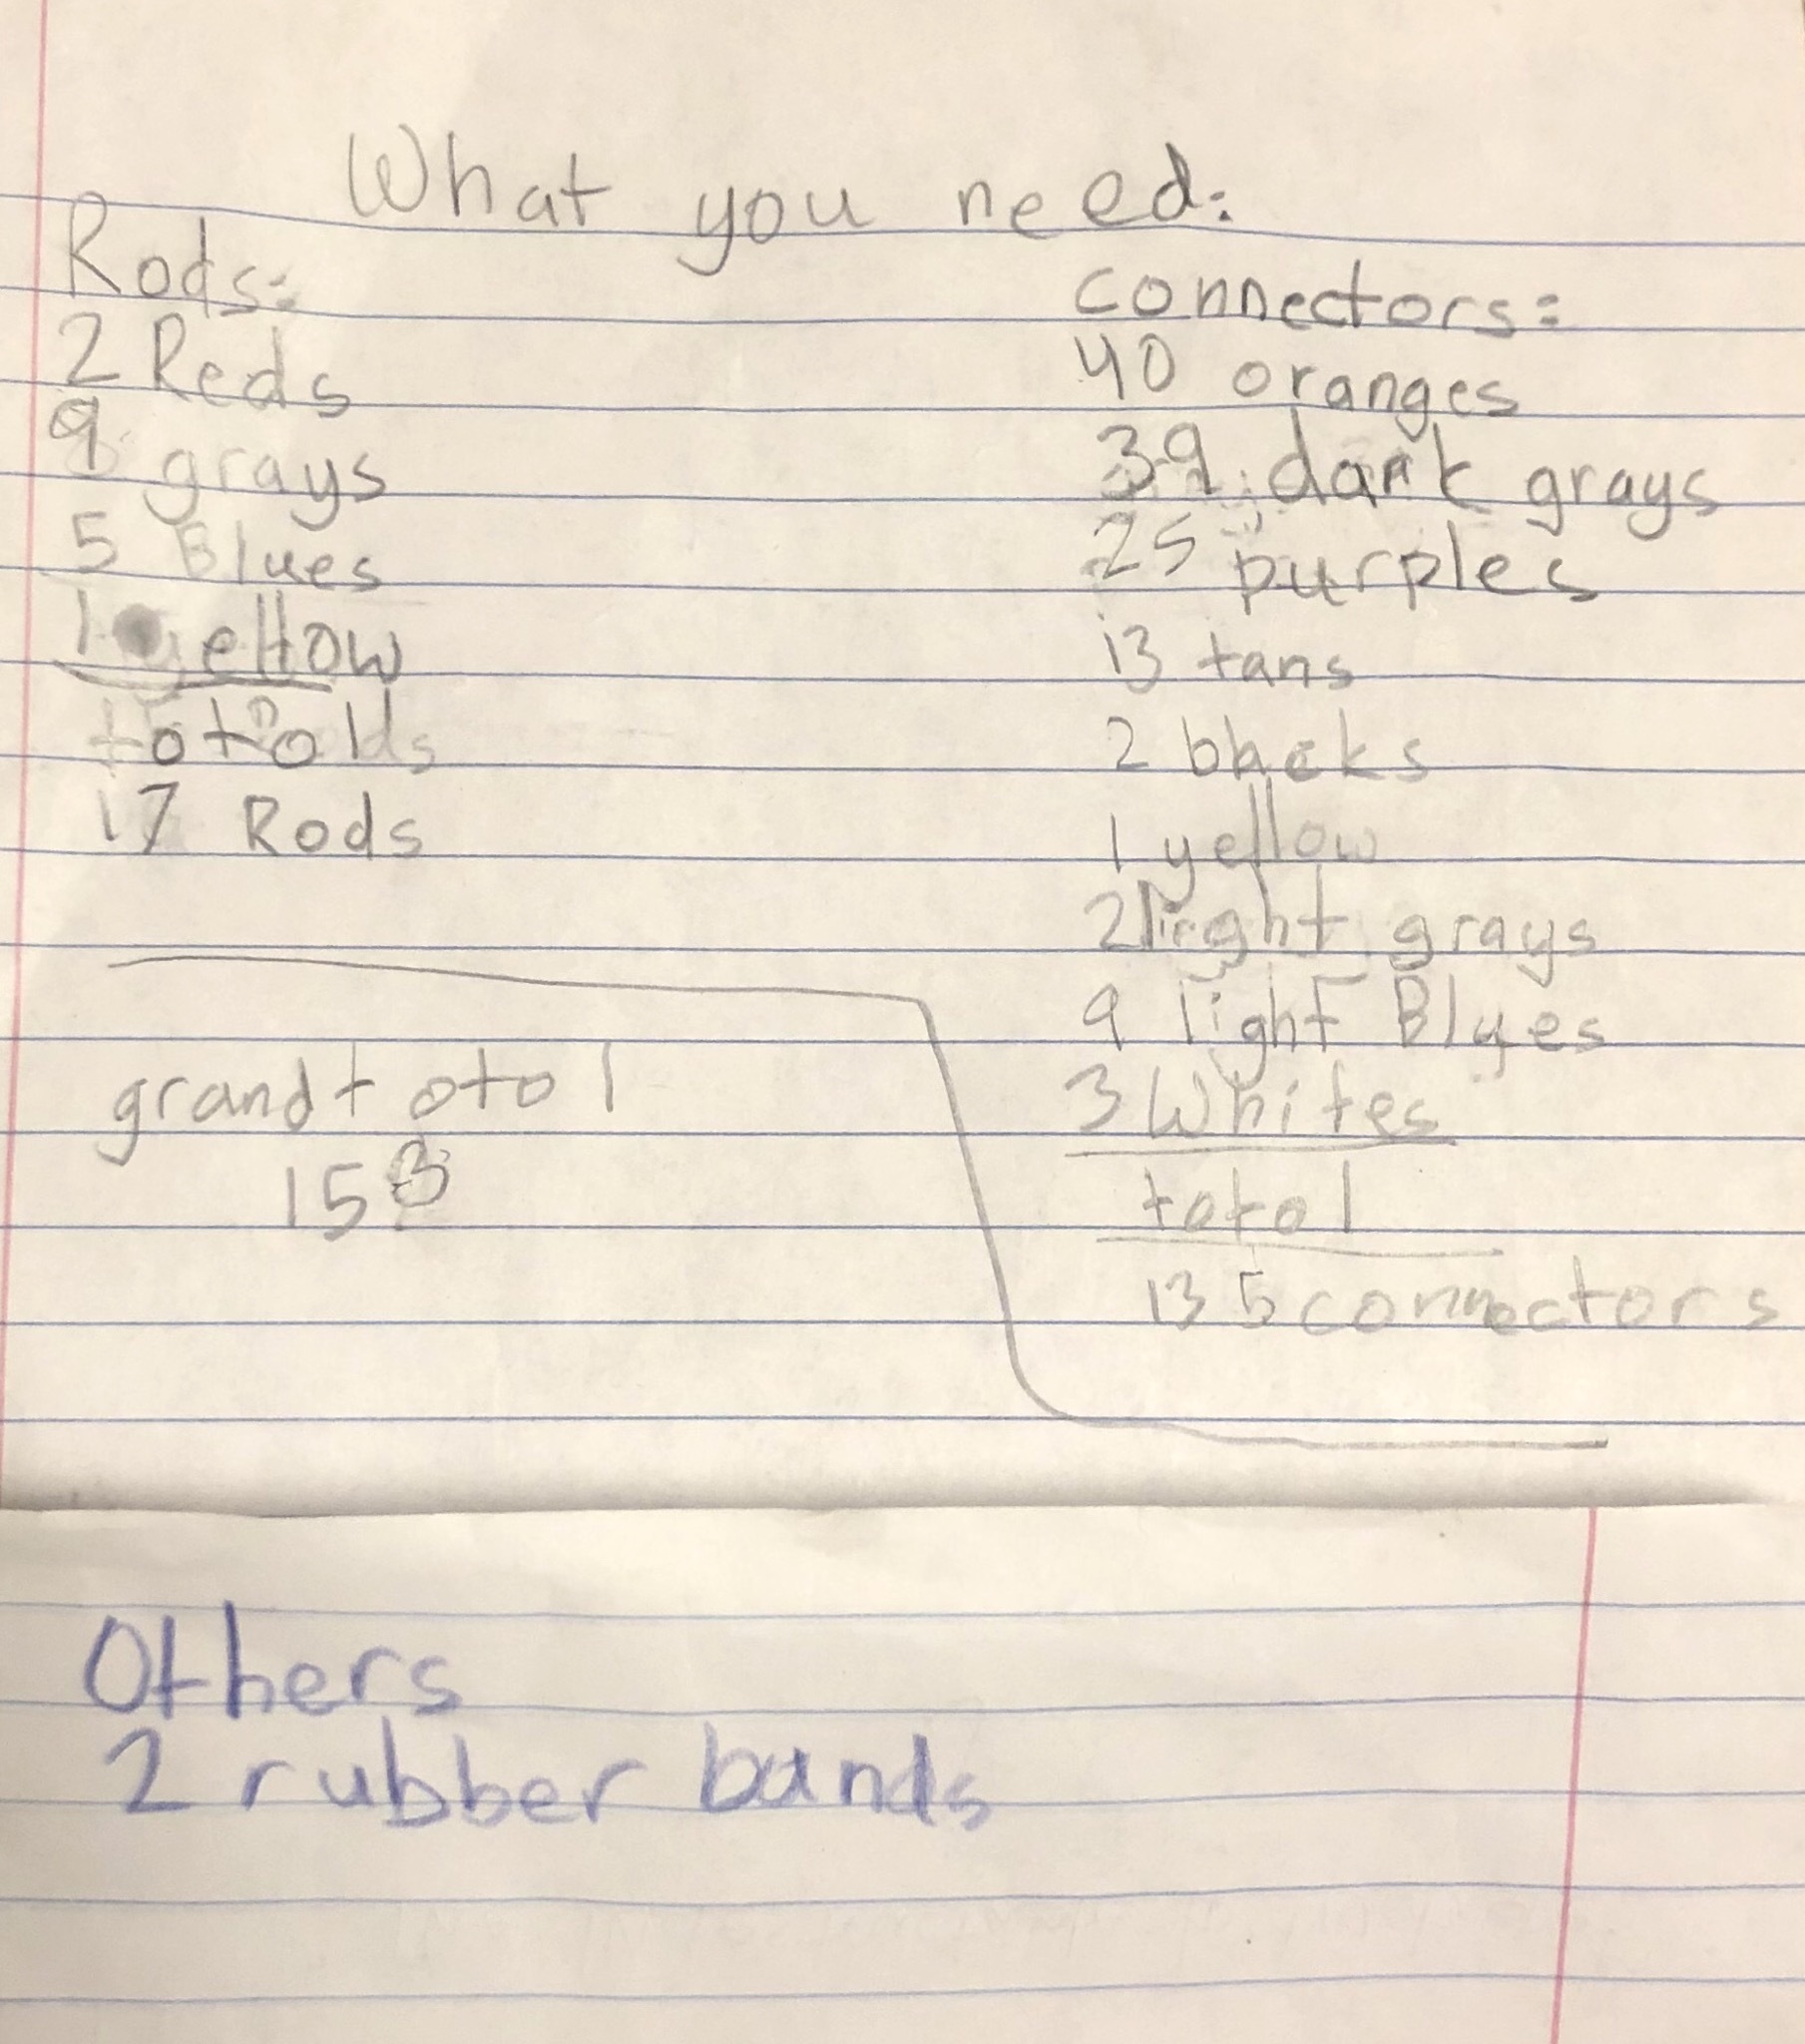 What you need:
Rods:
2 Reds
9 grays
5 Blues
1 yellow
totol
17 Rods
connectors:
40 oranges
39 dark grays
25 purples
13 tans
2 blacks
1 yellow
2 light grays
9 light Blues
3 Whites
totol
135 connectors
grand totol
153
Others
2 rubber bands